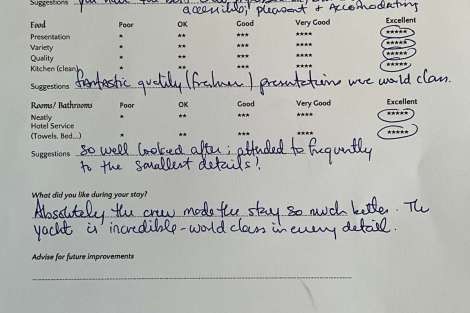 Suggestions
accessible, pleasant + accomodating
Food Poor OK Good Very Good Excellent
Presentation * ** *** **** *****
Variety * ** *** **** *****
Quality * ** *** **** *****
Kitchen (clean) * ** *** **** *****
Suggestions fantastic quality (freshness) presentations were world class.
Rooms/ Bathrooms Poor OK Good Very Good Excellent
Neatly * ** *** **** *****
Hotel Service
(Towels, Bed...) * ** *** **** *****
Suggestions So well looked after; attended to frequently
to the smallest details!
What did you like during your stay?
Absolutely the crew made the stay so much better. The
yacht is incredible - world class in every detail.
Advise for future improvements